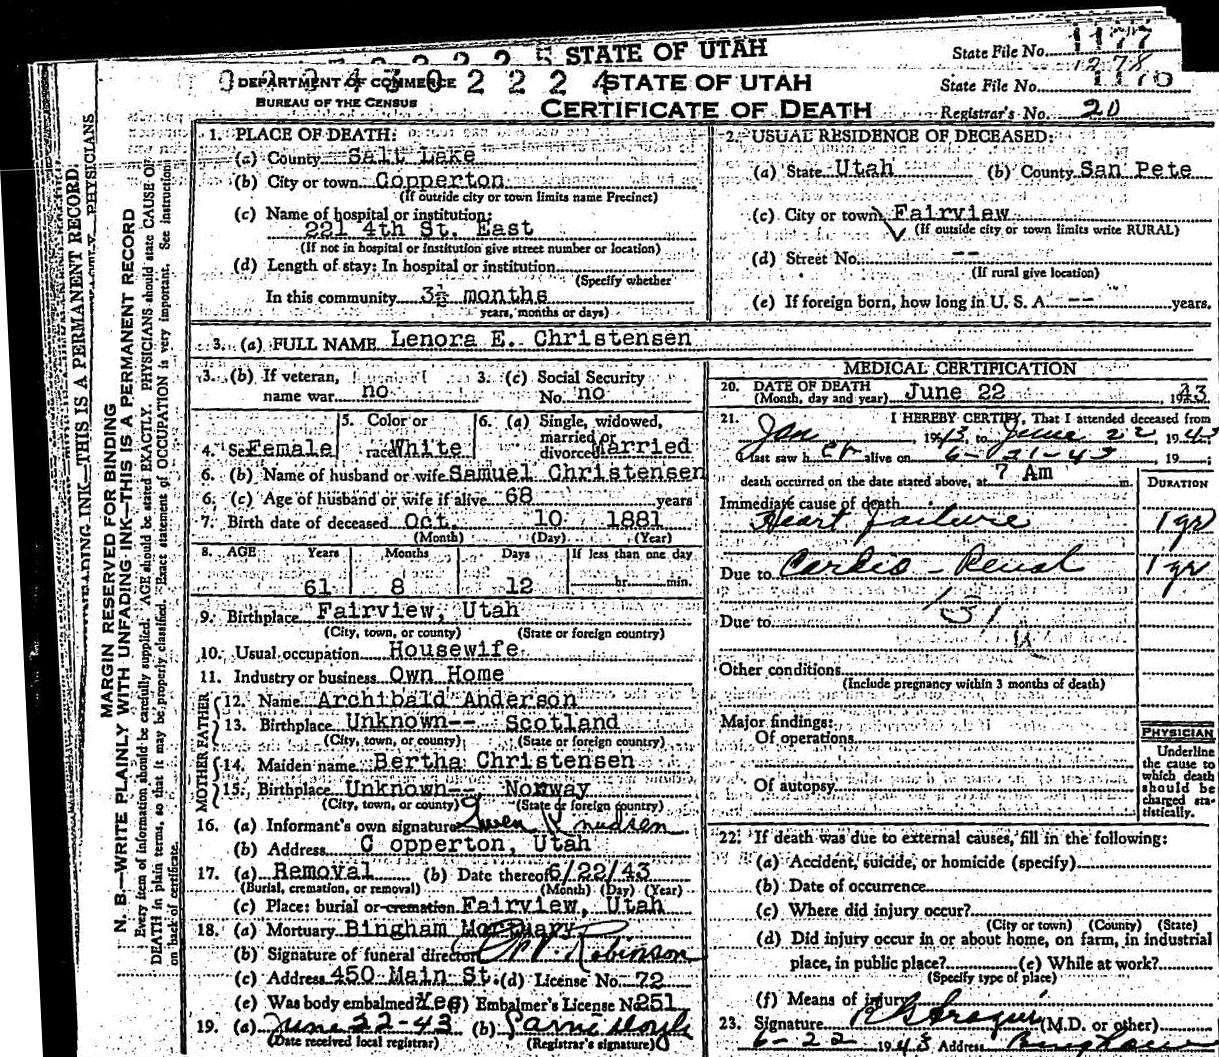 STATE OF UTAH
State File No. 1177
1278
0 2 4 3 0 2 2 2 4
DEPARTMENT OF COMMERCE
STATE OF UTAH
State File No. 1176
BUREAU OF THE CENSUS
CERTIFICATE OF DEATH
Registrar's No. 20
MARGIN RESERVED FOR BINDING
N. B.—WRITE PLAINLY WITH UNFADING INK—THIS IS A PERMANENT RECORD
Every item of information should be carefully supplied. AGE should be stated EXACTLY. PHYSICIANS should state CAUSE OF
DEATH in plain terms, so that it may be properly classified. Exact statement of OCCUPATION is very important. See instructions
on back of certificate.
UNFADING INK—THIS IS A PERMANENT RECORD.
PHYSICIANS
1. PLACE OF DEATH:
(a) County Salt Lake
(b) City or town Copperton
(If outside city or town limits name Precinct)
(c) Name of hospital or institution:
221 4th St. East
(If not in hospital or institution give street number or location)
(d) Length of stay: In hospital or institution
(Specify whether
In this community 3½ months
years, months or days)
2. USUAL RESIDENCE OF DECEASED:
(a) State Utah (b) County San Pete
(c) City or town Fairview
(If outside city or town limits write RURAL)
(d) Street No. --
(If rural give location)
(e) If foreign born, how long in U. S. A. -- years.
3. (a) FULL NAME Lenora E. Christensen
3. (b) If veteran, 3. (c) Social Security
name war no No. no
4. Sex Female 5. Color or race White 6. (a) Single, widowed, married or divorced Married
6. (b) Name of husband or wife Samuel Christensen
6. (c) Age of husband or wife if alive 68 years
7. Birth date of deceased Oct. 10 1881
(Month) (Day) (Year)
8. AGE Years Months Days If less than one day
61 8 12 hr. min.
9. Birthplace Fairview, Utah
(City, town, or county) (State or foreign country)
10. Usual occupation Housewife
11. Industry or business Own Home
FATHER
12. Name Archibald Anderson
13. Birthplace Unknown-- Scotland
(City, town, or county) (State or foreign country)
MOTHER
14. Maiden name Bertha Christensen
15. Birthplace Unknown-- Norway
(City, town, or county) (State or foreign country)
16. (a) Informant's own signature Gwen Knudsen
(b) Address Copperton, Utah
17. (a) Removal (b) Date thereof 6/22/43
(Burial, cremation, or removal) (Month) (Day) (Year)
(c) Place: burial or cremation Fairview, Utah
18. (a) Mortuary Bingham Mortuary
(b) Signature of funeral director Robinson
(c) Address 450 Main St. (d) License No. 72
(e) Was body embalmed? Yes Embalmer's License No. 251
19. (a) June 22-43 (b)
(Date received local registrar) (Registrar's signature)
MEDICAL CERTIFICATION
20. DATE OF DEATH
(Month, day and year) June 22, 1943
21. I HEREBY CERTIFY, That I attended deceased from
Jan, 1943, to June 22 1943
I last saw her alive on 6-21-43, 19
death occurred on the date stated above, at 7 Am m.
DURATION
Immediate cause of death
Heart failure 1 yr
Due to Cardio-Renal 1 yr
131
Due to
Other conditions
(Include pregnancy within 3 months of death)
Major findings:
Of operations
Of autopsy
PHYSICIAN
Underline
the cause to
which death
should be
charged sta-
tistically.
22. If death was due to external causes, fill in the following:
(a) Accident, suicide, or homicide (specify)
(b) Date of occurrence
(c) Where did injury occur?
(City or town) (County) (State)
(d) Did injury occur in or about home, on farm, in industrial
place, in public place? (e) While at work?
(Specify type of place)
(f) Means of injury
23. Signature (M.D. or other)
6-22 1943 Address Bingham